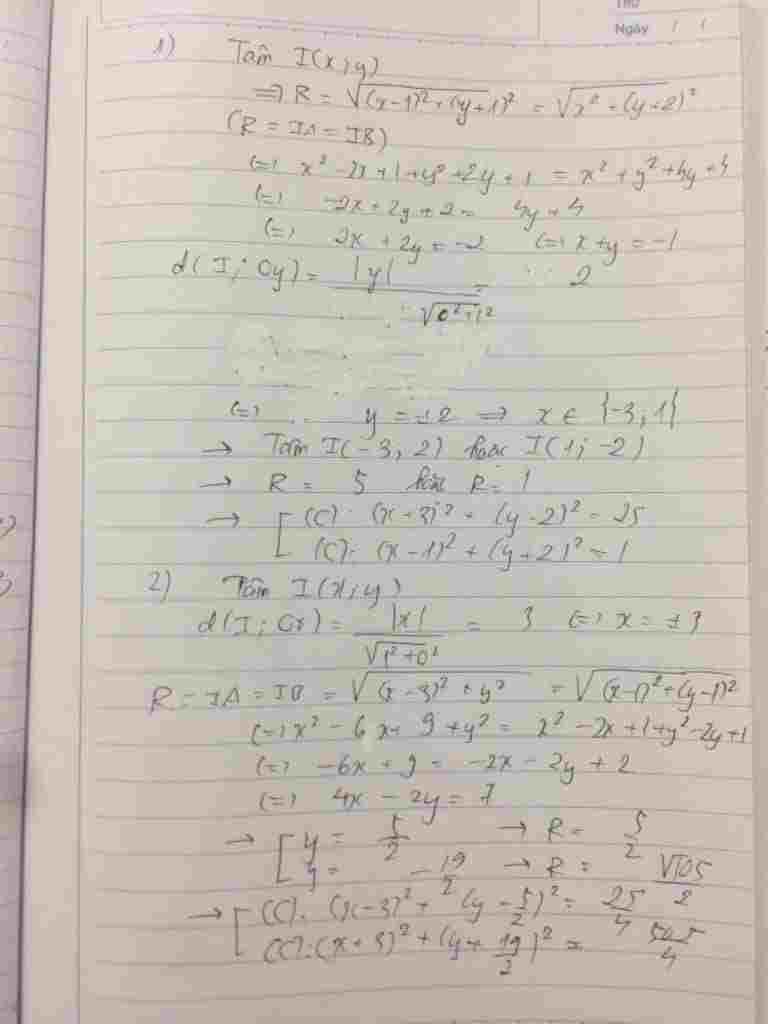 Thứ
Ngày / /
1) Tâm I(x;y)
=> R = √(x-1)²+(y+1)² = √x² + (y+2)²
(R = IA = IB)
(=) x² - 2x + 1 + y² + 2y + 1 = x² + y² + 4y + 4
(=) -2x + 2y + 2 = 4y + 4
(=) 2x + 2y = -2 (=) x + y = -1
d(I; Oy) = |y| / √0²+1² = 2
(=) y = ±2 => x ∈ {-3, 1}
→ Tâm I(-3, 2) hoặc I(1; -2)
→ R = 5 hoặc R = 1
→ [ (C): (x+3)² + (y-2)² = 25
(C): (x-1)² + (y+2)² = 1
2) Tâm I(x;y)
d(I; Ox) = |x| / √1²+0² = 3 (=) x = ±3
R = IA = IB = √(x-3)² + y² = √(x-1)² + (y-1)²
(=) x² - 6x + 9 + y² = x² - 2x + 1 + y² - 2y + 1
(=) -6x + 9 = -2x - 2y + 2
(=) 4x - 2y = 7
→ [ y = 5/2 → R = 5/2
y = -19/2 → R = √505/2
→ [ (C): (x-3)² + (y - 5/2)² = 25/4
(C): (x+3)² + (y + 19/2)² = 505/4